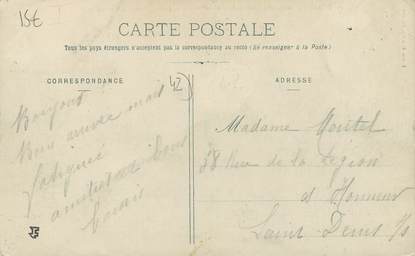 15€
CARTE POSTALE
Tous les pays étrangers n'acceptent pas la correspondance au recto (Se renseigner à la Poste)
CORRESPONDANCE
42
Bonjour
Bien arrivée mais
fatiguée
amitiés
ADRESSE
Madame
38 Rue de la Légion
d Honneur
Saint Denis